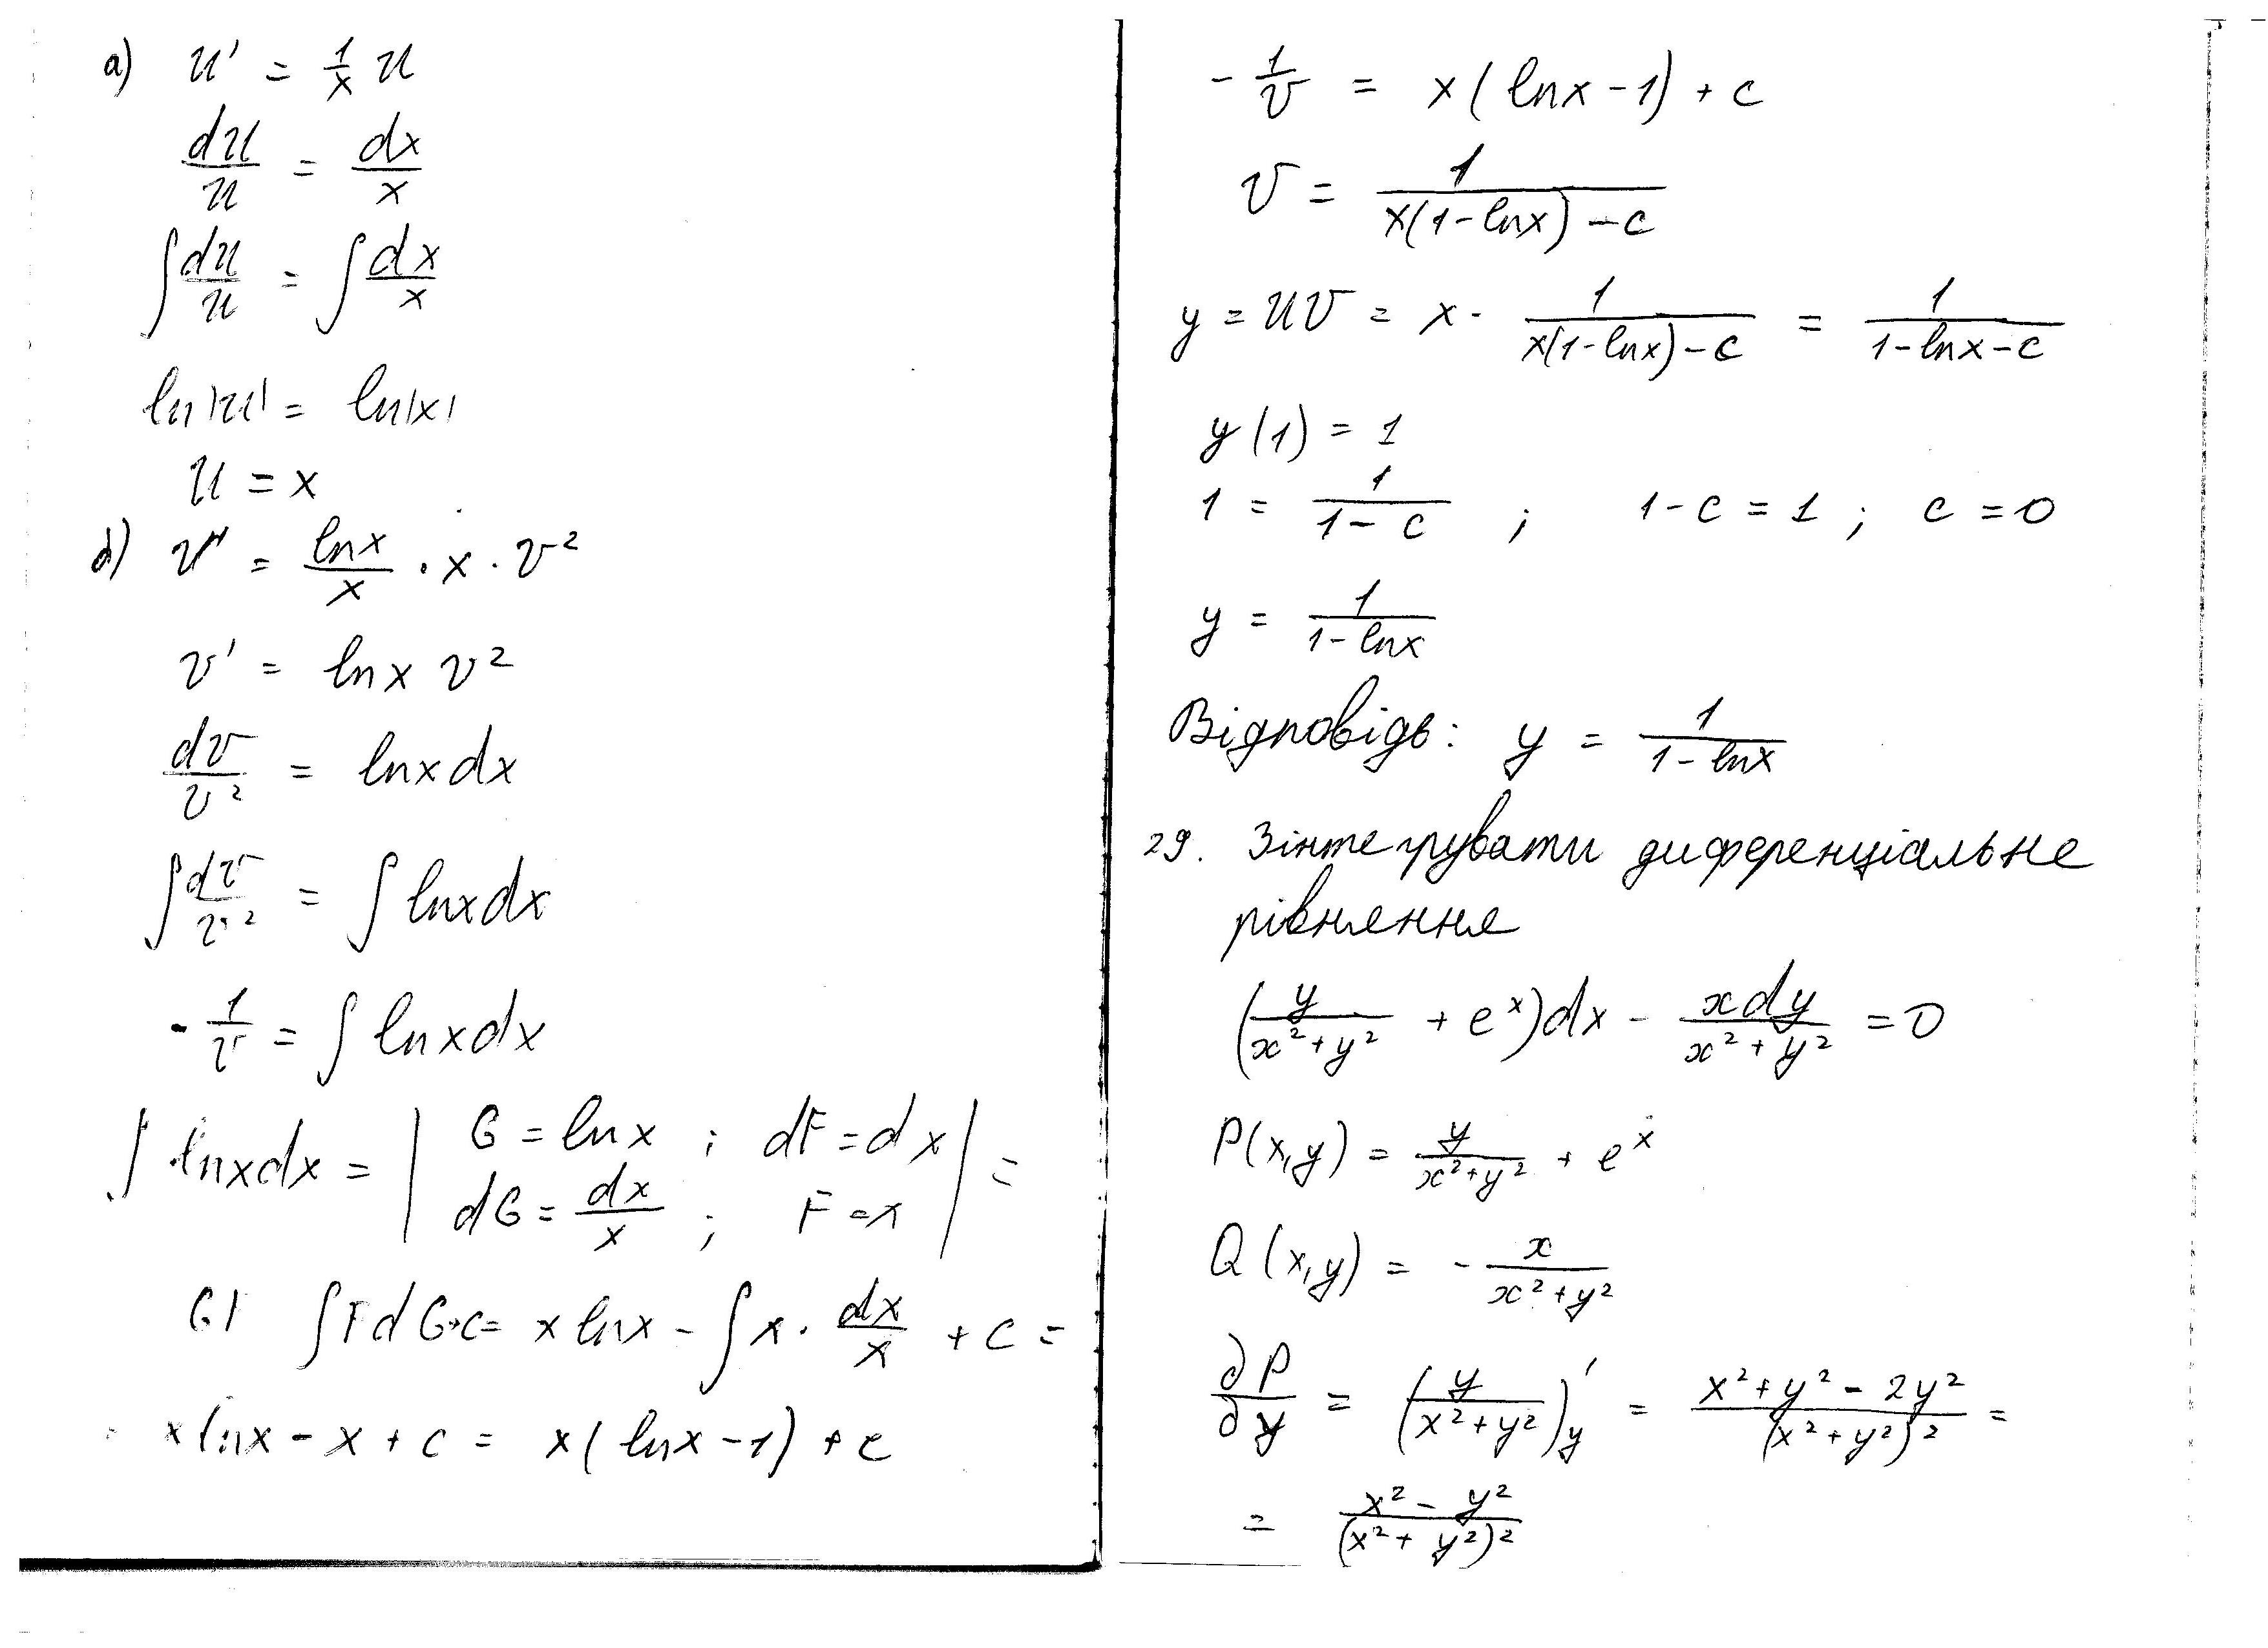 a) u' = 1/x u
du/u = dx/x
∫ du/u = ∫ dx/x
ln|u| = ln|x|
u = x
b) v' = lnx/x · x · v²
v' = lnx v²
dv/v² = lnxdx
∫ dv/v² = ∫ lnxdx
- 1/v = ∫ lnxdx
∫ lnxdx = | G = lnx ; dF = dx
dG = dx/x ; F = x | =
GF ∫FdG+C = x lnx - ∫ x · dx/x + C =
= xlnx - x + C = x(lnx - 1) + C
- 1/v = x(lnx - 1) + C
v = 1/(x(1 - lnx) - C)
y = uv = x · 1/(x(1-lnx) - C) = 1/(1 - lnx - C)
y(1) = 1
1 = 1/(1 - C) ; 1 - C = 1 ; C = 0
y = 1/(1 - lnx)
Відповідь: y = 1/(1 - lnx)
29. Зінтегрувати диференціальне
рівняння
(y/(x²+y²) + eˣ)dx - xdy/(x²+y²) = 0
P(x,y) = y/(x²+y²) + eˣ
Q(x,y) = - x/(x²+y²)
∂P/∂y = (y/(x²+y²))'y = (x²+y² - 2y²)/(x²+y²)² =
= (x² - y²)/(x² + y²)²